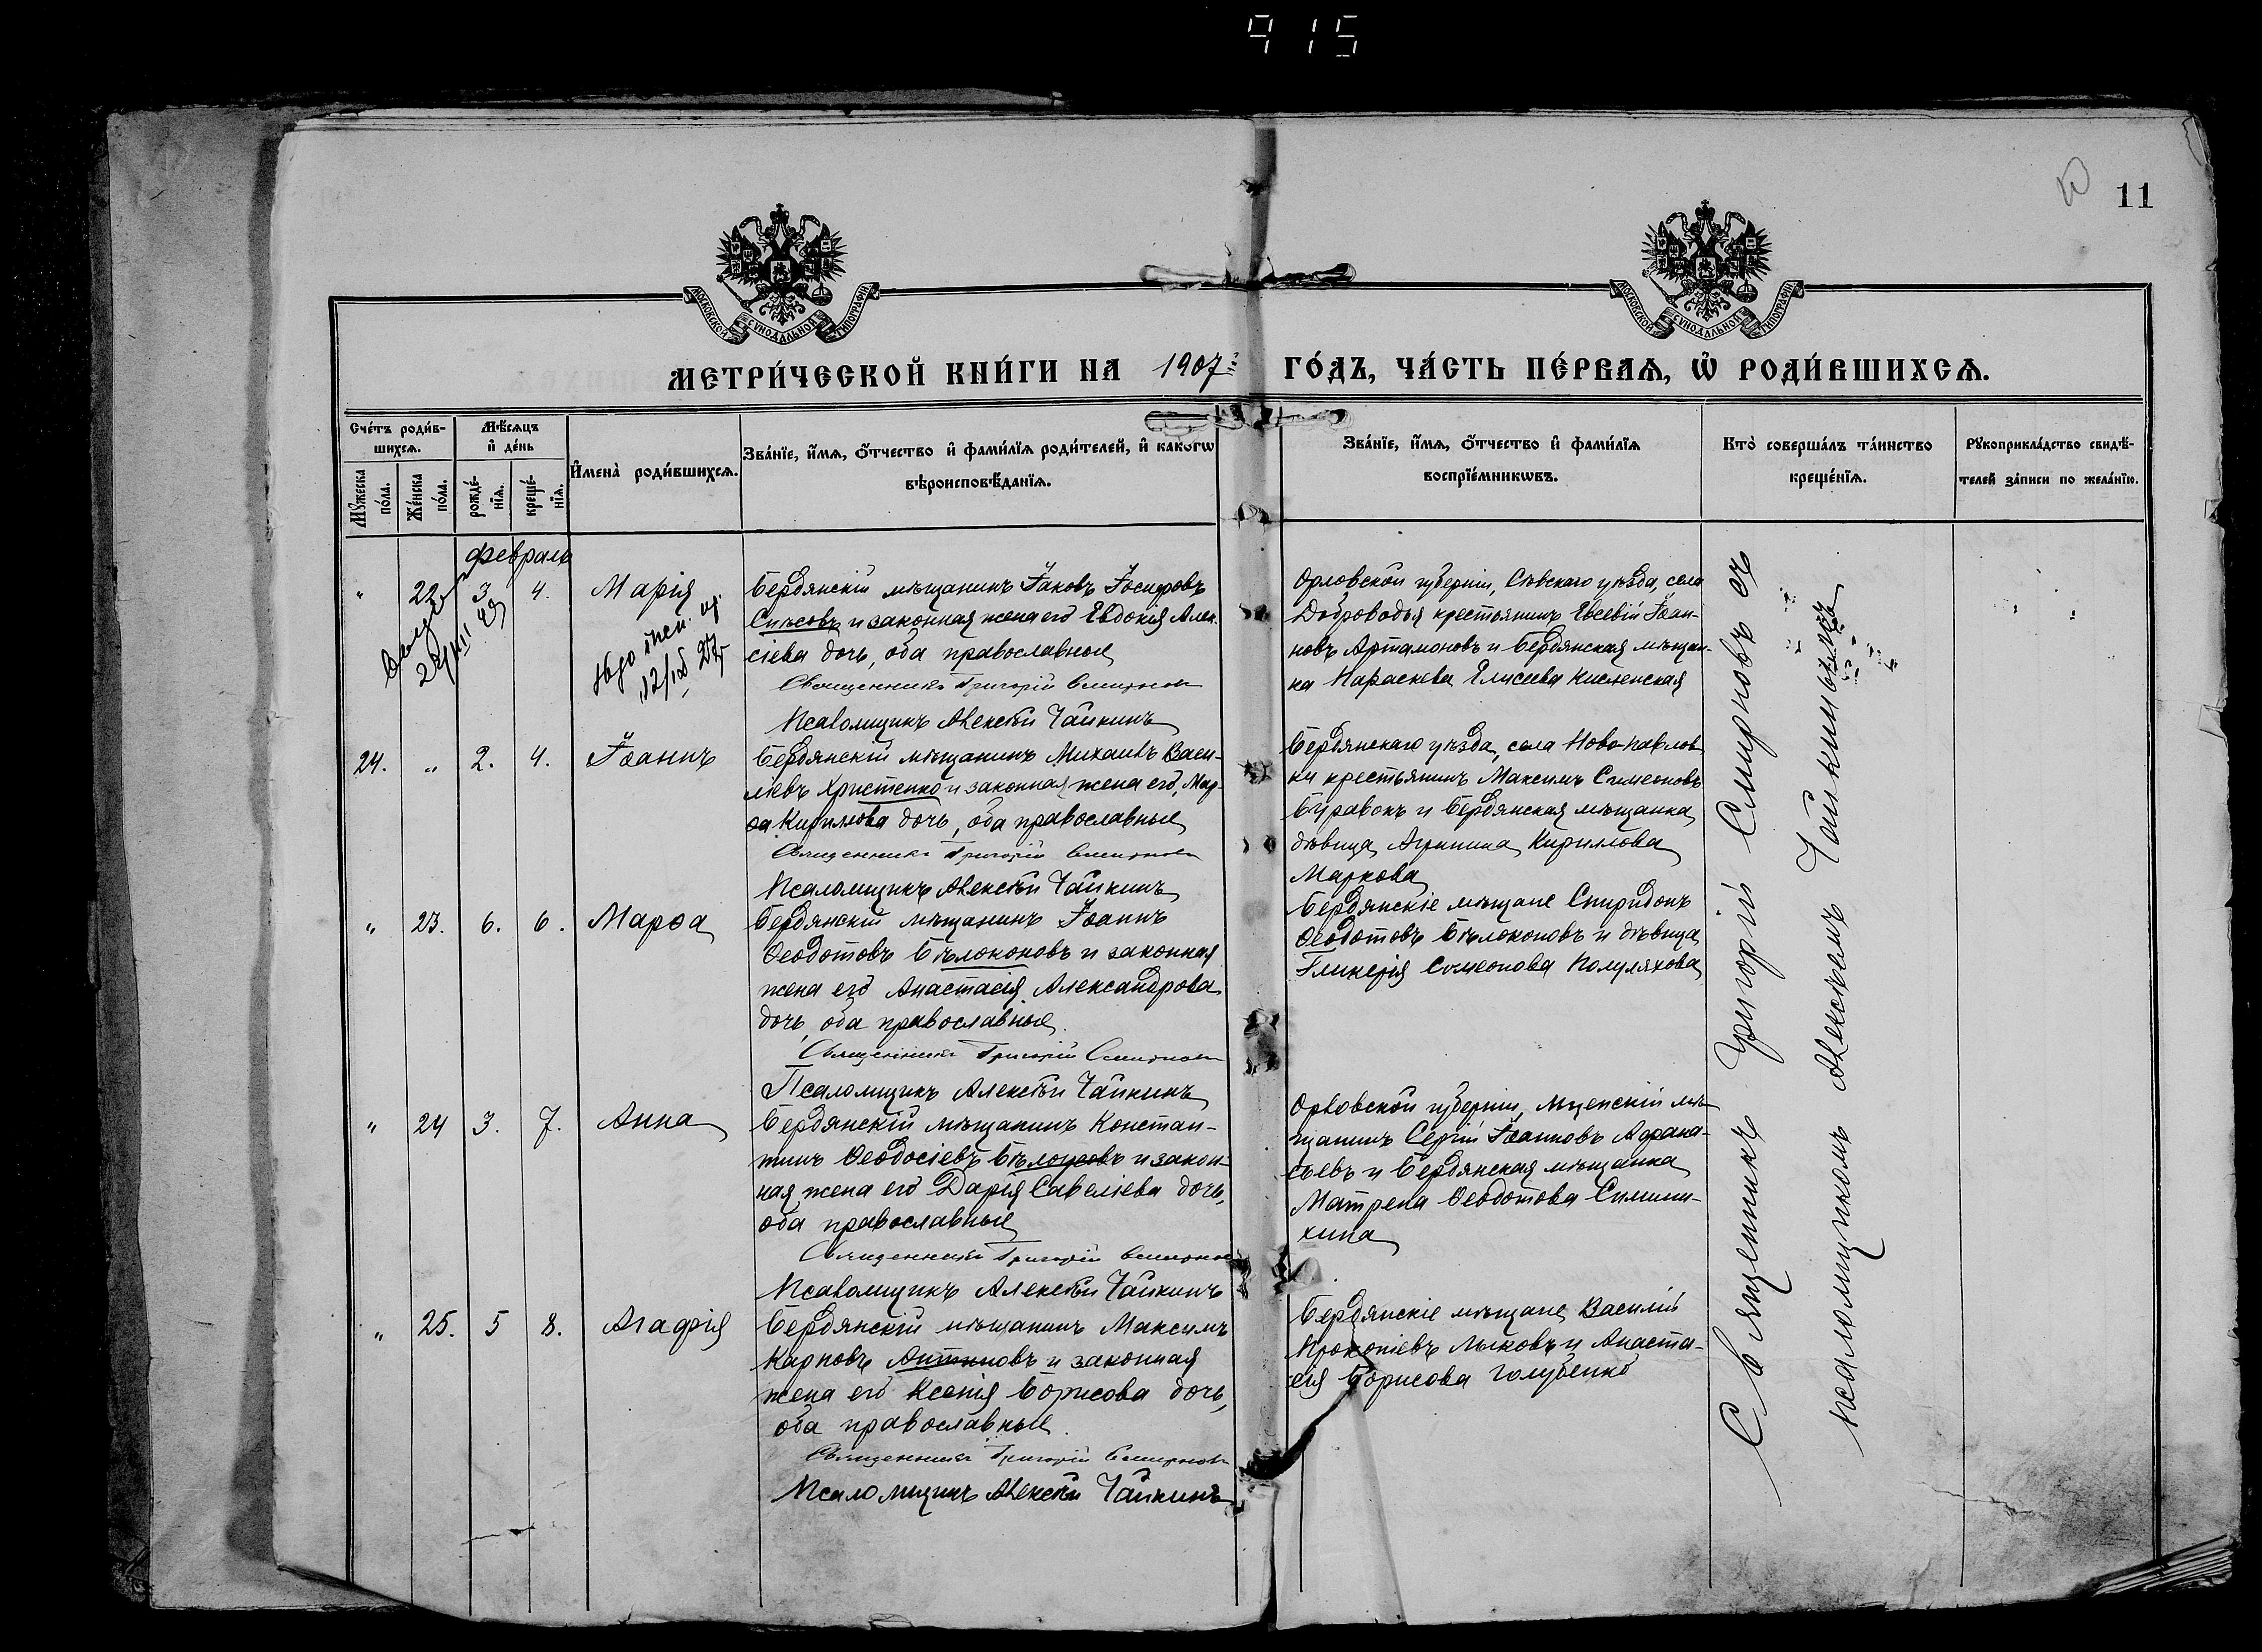 915
11
МОСКОВСКОЙ СѴНОДАЛЬНОЙ ТИПОГРАФІИ
МОСКОВСКОЙ СѴНОДАЛЬНОЙ ТИПОГРАФІИ
МЕТРИ́ЧЕСКОЙ КНИ́ГИ НА 1907й ГО́ДЪ, ЧА́СТЬ ПЕ́РВАѦ, Ѽ РОДИ́ВШИХСѦ.
Сче́тъ роди́в-
шихсѧ.
Мꙋжеска по́ла.
Же́нска по́ла.
Мѣ́сѧцъ
и҆ де́нь
рожде́-
нїѧ.
креще́-
нїѧ.
И҆мена̀ роди́вшихсѧ.
Зва́нїе, и҆́мѧ, ѻ҆́тчество и҆ фами́лїѧ роди́телей, и҆ како́гѡ
вѣроисповѣ́данїѧ.
Зва́нїе, и҆́мѧ, ѻ҆́тчество и҆ фами́лїѧ
воспрїе́мникѡвъ.
Кто̀ соверша́лъ та́инство
креще́нїѧ.
Рꙋкоприкла́дство свидѣ́-
телей за́писи по жела́нїю.
Февраль
" 22 3. 4. Марія
12/
Бердянскій мѣщанинъ Іаковъ Іосифовъ
Сиѣсовъ и законная жена его Евдокія Алек-
сіева дочь, оба православные
Священникъ Григорій Смирновъ
Псаломщикъ Алексѣй Чайкинъ
Орловской губерніи, Сѣвскаго уѣзда, села
Доброводья крестьянинъ Евсевій Іоан-
новъ Артамоновъ и Бердянская мѣщан-
ка Параскева Елисеева Кисленская
24. " 2. 4. Іоаннъ
Бердянскій мѣщанинъ Михаилъ Васи-
ліевъ Христенко и законная жена его, Мар-
ѳа Кириллова дочь, оба православные
Священникъ Григорій Смирновъ
Псаломщикъ Алексѣй Чайкинъ
Бердянскаго уѣзда, села Ново-Павлов
ки крестьянинъ Максимъ Симеоновъ
Буравокъ и Бердянская мѣщанка
дѣвица Агрипина Кириллова
Маркова
" 23. 6. 6. Марѳа
Бердянскій мѣщанинъ Іоаннъ
Ѳеодотовъ Бѣлоконовъ и законная
жена его Анастасія Александрова
дочь, оба православные.
Священникъ Григорій Смирновъ
Псаломщикъ Алексѣй Чайкинъ
Бердянскіе мѣщане Спиридонъ
Ѳеодотовъ Бѣлоконовъ и дѣвица
Гликерія Симеонова Полуляхова
" 24 3. 7. Анна
Бердянскій мѣщанинъ Констан-
тинъ Ѳеодосіевъ Бѣлоусовъ и закон-
ная жена его Дарія Савеліева дочь,
оба православные
Священникъ Григорій Смирновъ
Псаломщикъ Алексѣй Чайкинъ
Орловской губерніи, Мценскій мѣ-
щанинъ Сергій Іоанновъ Афана-
сьевъ и Бердянская мѣщанка
Матрена Ѳеодотова Симини-
хина
" 25. 5 8. Агафія
Бердянскій мѣщанинъ Максимъ
Карповъ Антиновъ и законная
жена его Ксенія Борисова дочь,
оба православные.
Священникъ Григорій Смирновъ
Псаломщикъ Алексѣй Чайкинъ
Бердянскіе мѣщане Василій
Прокопіевъ Лысковъ и Анаста-
сія Борисова Голубенко
Священникъ Григорій Смирновъ съ
псаломщикомъ Алексѣемъ Чайкинымъ